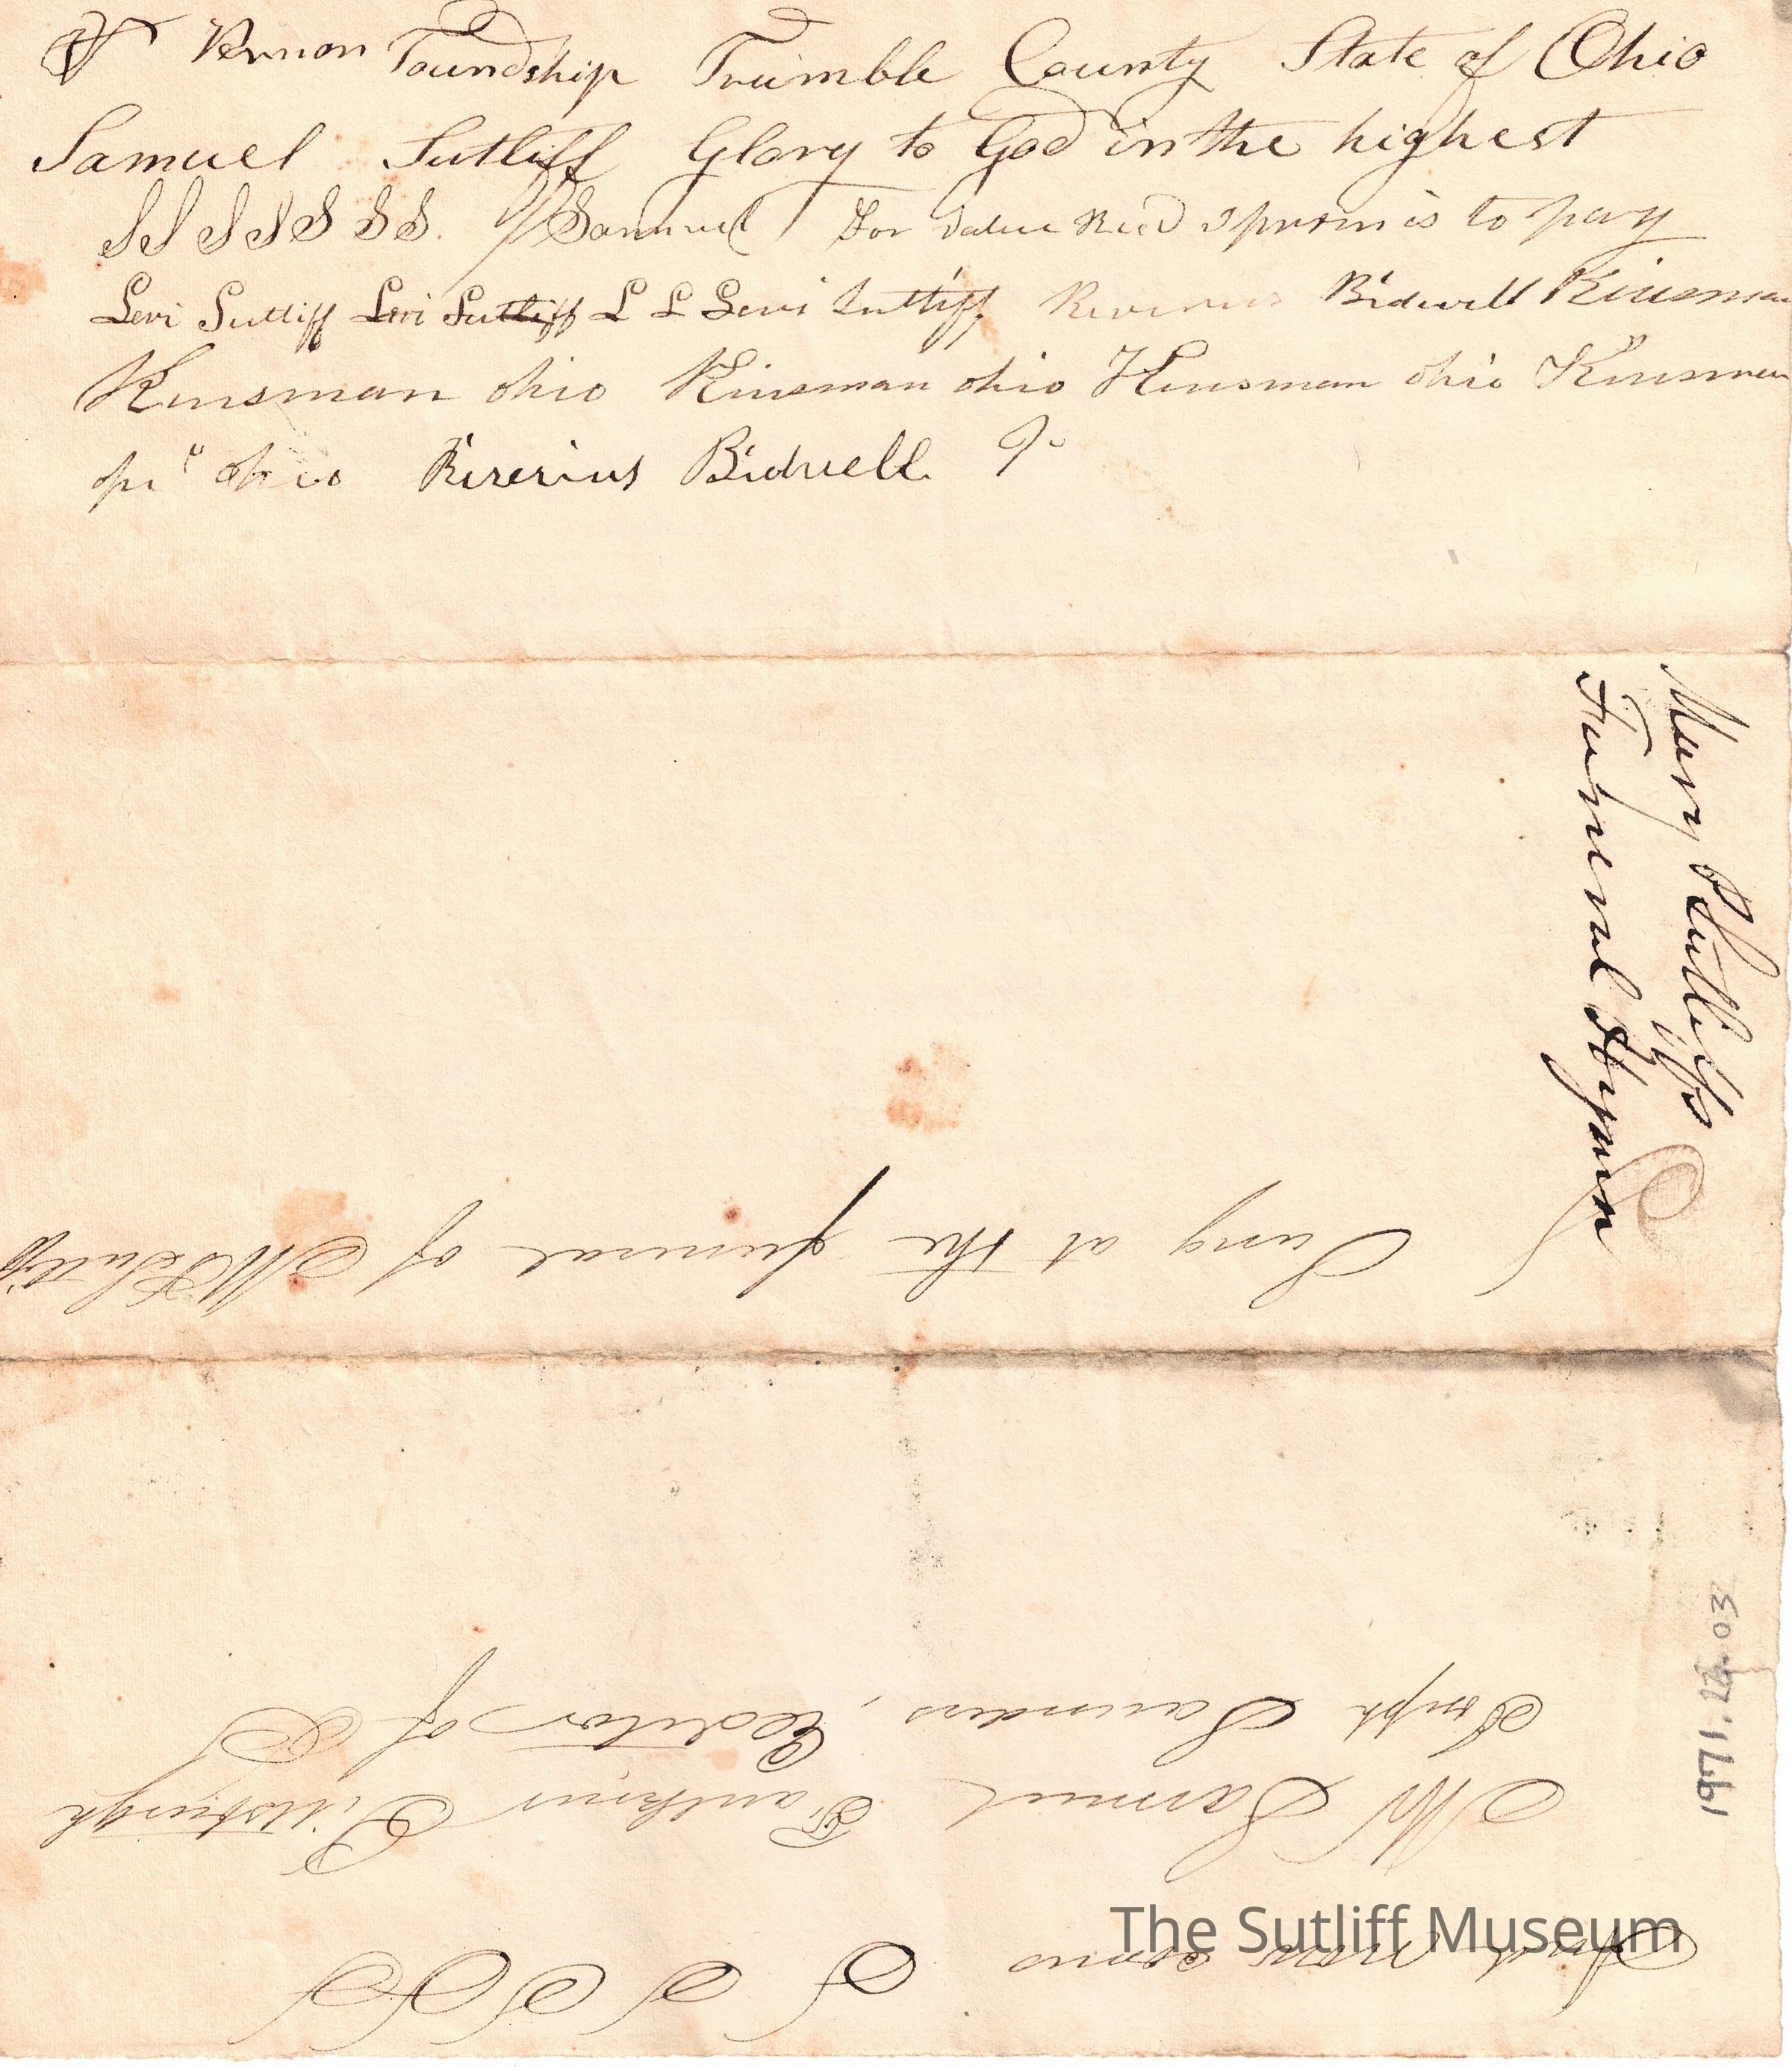 Vernon Toundship Trumble County State of Ohio
Samuel Sutliff Glory to God in the highest
S S S S S S S. Samuel For Value Recd I promis to pay
Levi Sutliff Levi Sutliff L L Levi Sutliff Riverius Bidwell Kinsman
Kinsman ohio Kinsman ohio Kinsman ohio Kinsman
ohio Riverius Bidwell
Mary Sutliffs
Funeral Hymn
Sung at the funeral of M Sutliff
S S S S S
Mr Samuel Pittsburgh
Joseph Saunders, Eeditor of
1971.22.03
The Sutliff Museum